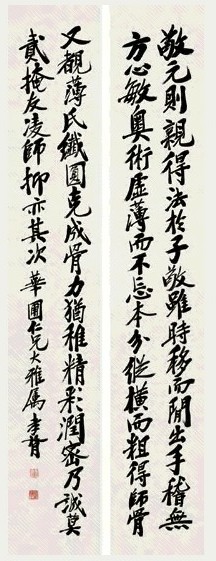 敬元則親得法於子敬雖時移而間出手稽無
方心敏奧術虛薄而不忘本分縱橫而粗得師骨
又觀薄氏纖圓克成骨力猶稚精彩潤密乃誠莫
貳掩友凌師抑亦其次 華圃仁兄大雅屬